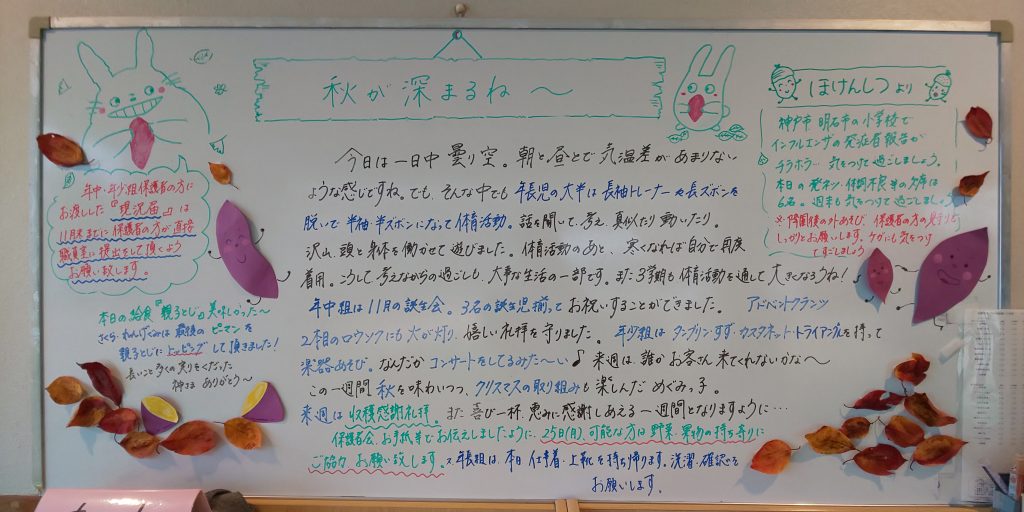 秋が深まるね〜
今日は一日中曇り空。朝と昼とで気温差があまりない
ような感じですね。でも、そんな中でも年長児の大半は長袖トレーナーや長ズボンを
脱いで半袖・半ズボンになって体育活動。話を聞いて、考え、真似たり動いたり。
沢山、頭と身体を働かせて遊びました。体育活動のあと、寒くなれば自分で再度
着用。こうして、考えながらの過ごしも、大事な生活の一部です。また3学期も体育活動を通して大きくなろうね！
年中組は11月の誕生会。3名の誕生児揃ってお祝いすることができました。 アドベントクランツ
2本目のロウソクにも火が灯り、嬉しい礼拝を守りました。 年少組はタンブリン・すず・カスタネット・トライアングルを持って
楽器あそび。なんだかコンサートをしてるみた〜い♪ 来週は、誰かお客さん来てくれないかな〜
この一週間秋を味わいつつ、クリスマスの取り組みも楽しんだめぐみっ子。
来週は収穫感謝礼拝。また喜び一杯、恵みに感謝しあえる一週間となりますように…
保護者会、お手紙等でお伝えしましたように、25日(月)、可能な方は野菜、果物の持ち寄りに
ご協力、お願い致します。 年長組は、本日、仕事着・上靴を持ち帰ります。洗濯・確認を
お願いします。
年中・年少組保護者の方に
お渡しした『現況届』は
11月末までに保護者の方が直接
職員室に提出をして頂くよう
お願い致します。
本日の給食『親子とじ』美味しかった〜
さくら・れんげぐみは最後のピーマンを
親子とじにトッピングして頂きました！
長いこと多くの実りをくださった
神さまありがとう〜
ほけんしつより
神戸市 明石市の小学校で
インフルエンザの発症者報告が
チラホラ… 気をつけて過ごしましょう。
本日の発ネツ・体調不良等の欠席は
6名。週末も気をつけて過ごしましょう
※門開閉後の外あそび、保護者の方の見守り
しっかとお願いします。ケガにも気をつけ
てすごしましょう